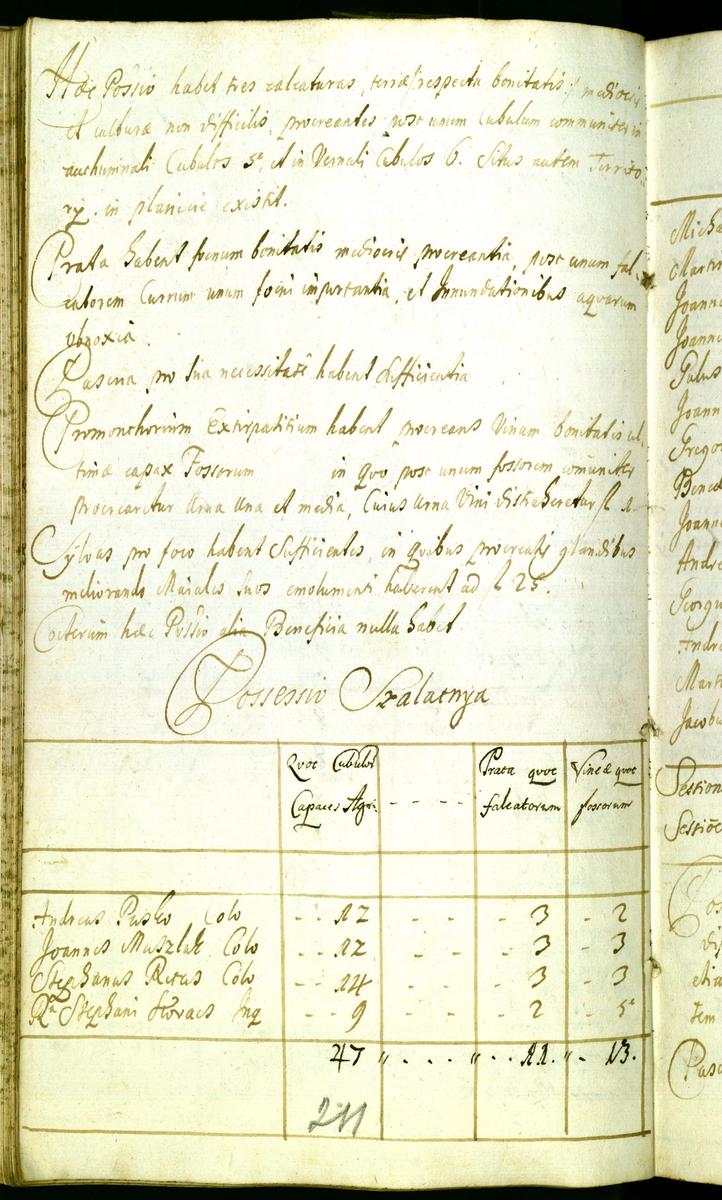 Haec Possio habet tres calcaturas, terrae respectu bonitatis mediocris
et culturae non difficilis, procreantes post unum Cubulum communiter in
authumnali Cubulos 5, et in Vernali Cubulos 6. Situs autem Territo-
ry in planicie existit.
Prata habent foenum bonitatis mediocris procreantia, post unum fal-
catorem Currum unum foeni importantia, et Innundationibus aquarum
obnoxia.
Pascua pro sua necessitate habent sufficientia
Promonthorium Extirpatitium habent procreans Vinum bonitatis ul-
timae capax Fossorum in quo post unum fossorem comuniter
procrearetur Urna una et media, Cuius Urna Vini distraheretur fl 1.
Sylvas pro foco habent Sufficientes, in quibus procreatis glandibus
meliorando Maiales suos emolumenti haberent ad fl 25.
Coeterum haec Possio alia Beneficia nulla habet
Possessio Szalatnya
Quot Cubulos Prata quot Vineae quot
Capaces Agri - - - - falcatorum fossorum
Andreas Pasko Colo - - 12 - - - 3 - 2
Joannes Muszlak Colo - - 12 - - - 3 - 3
Stephanus Colo - - 14 - - - 3 - 3
Ra Stephani Horvacs Inq - - 9 - - - 2 - 5
47 " - - - " - - 11. " - 13.
211
Micha
Martin
Joanne
Joanne
Joann
Grego
Bened
Joanne
Andre
Georgi
Andre
Mart
Jacobu
Session
Sessio
etia
tem
Pasc